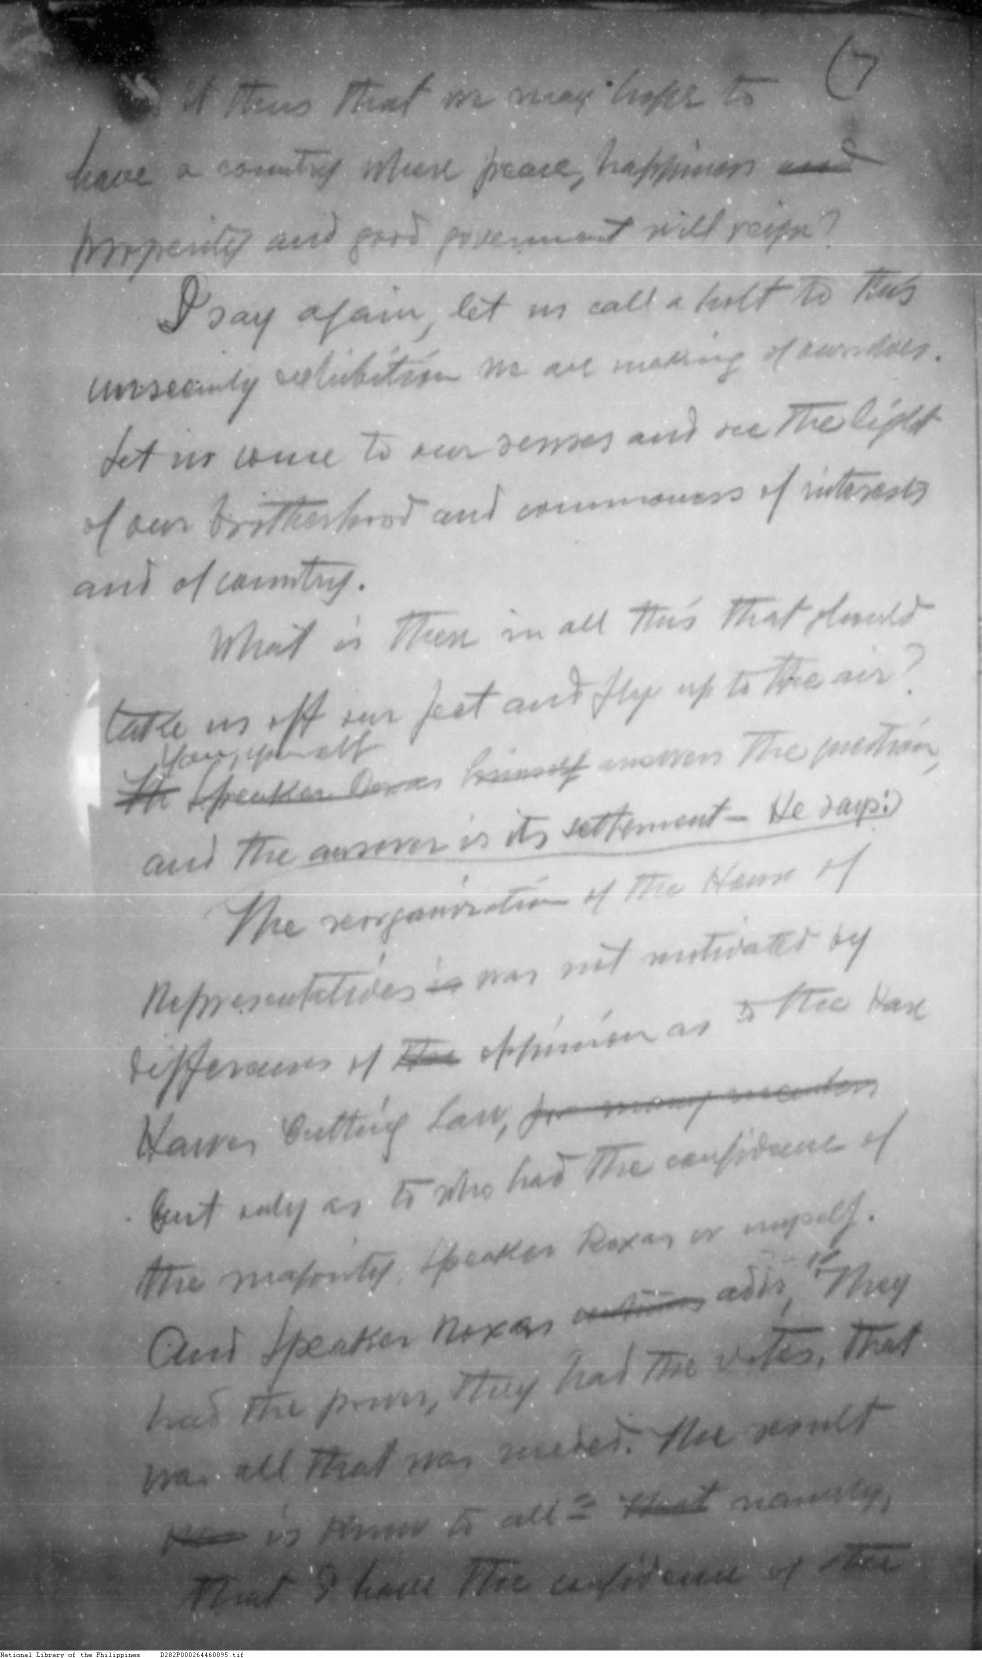 (7
it thus that we may hope to
have a country where peace, happiness and
prosperity and good government will reign?
I say again, let us call a halt to this
unseemly exhibition we are making of ourselves.
Let us come to our senses and see the light
of our brotherhood and commonness of interests
and of country.
What is there in all this that should
take us off our feet and fly up to the air?
You, yourself
The Speaker Roxas himself answers the question,
and the answer is its settlement – He says:)
The reorganization of the House of
Representatives is was not motivated by
differences of the oppinion as to the Hare
Hawes Cutting Law, for many members
but only as to who had the confidence of
the majority, Speaker Roxas or myself.
And Speaker Roxas adds, "They
had the power, they had the votes, that
was all that was needed. The result
is know to all – that namely,
that I have the confidence of the
National Library of the Philippines D282P000264460095.tif